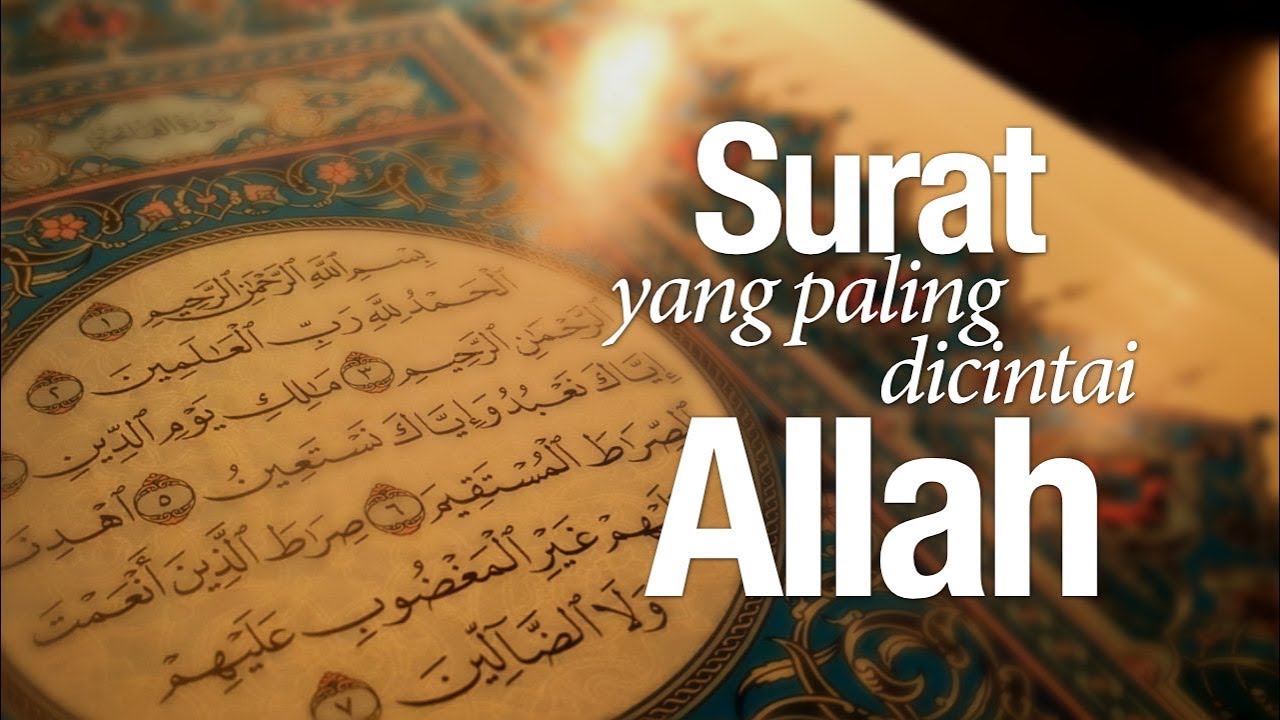 بِسْمِ ٱللَّهِ ٱلرَّحْمَٰنِ ٱلرَّحِيمِ ١
ٱلْحَمْدُ لِلَّهِ رَبِّ ٱلْعَٰلَمِينَ ٢
ٱلرَّحْمَٰنِ ٱلرَّحِيمِ ٣ مَٰلِكِ يَوْمِ ٱلدِّينِ
إِيَّاكَ نَعْبُدُ وَإِيَّاكَ نَسْتَعِينُ ٥ ٱهْدِنَ
ٱلصِّرَٰطَ ٱلْمُسْتَقِيمَ ٦ صِرَٰطَ ٱلَّذِينَ أَنْعَمْتَ
لَيْهِمْ غَيْرِ ٱلْمَغْضُوبِ عَلَيْهِمْ
وَلَا ٱلضَّآلِّينَ ٧
Surat
yang paling
dicintai
Allah